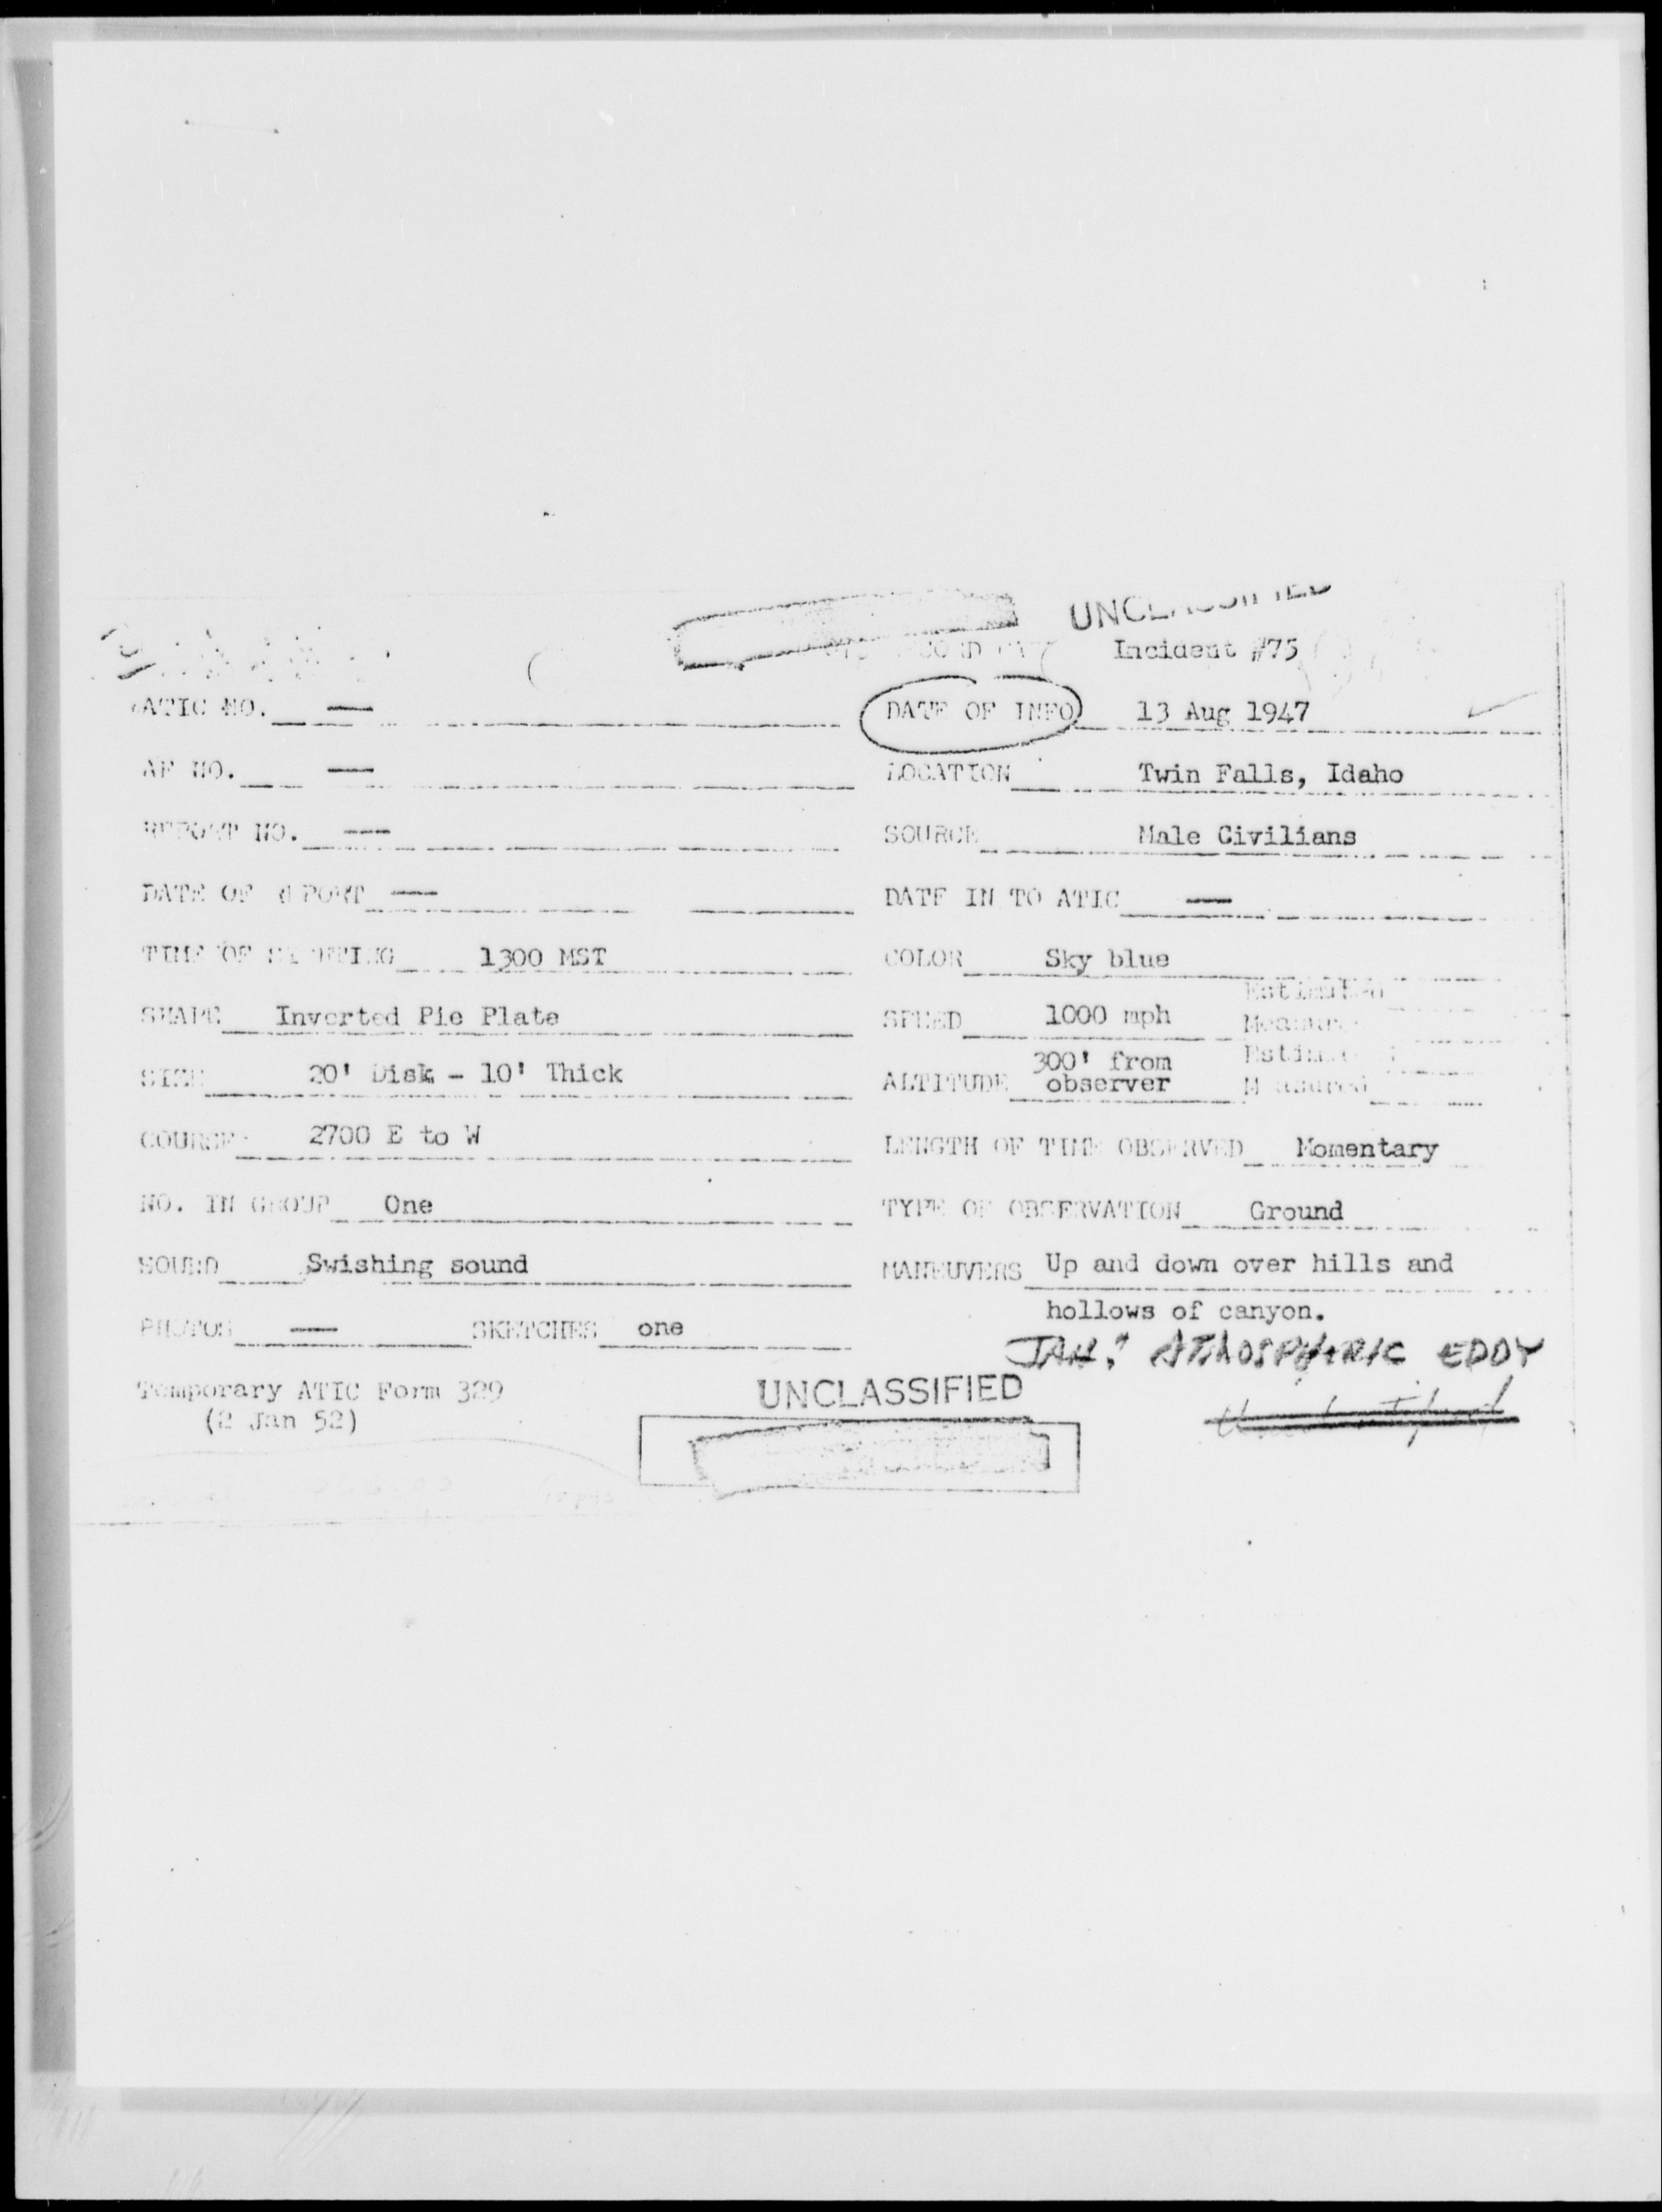 UNCLASSIFIED
Incident #75
ATIC NO. —
DATE OF INFO 13 Aug 1947
AF NO. —
LOCATION Twin Falls, Idaho
REPORT NO. —
SOURCE Male Civilians
DATE OF REPORT —
DATE IN TO ATIC —
TIME OF SIGHTING 1300 MST
COLOR Sky blue
SHAPE Inverted Pie Plate
SPEED 1000 mph
Estimated
Measured
SIZE 20' Disk - 10' Thick
ALTITUDE 300' from
observer
Estimated
Measured
COURSE 2700 E to W
LENGTH OF TIME OBSERVED Momentary
NO. IN GROUP One
TYPE OF OBSERVATION Ground
SOUND Swishing sound
MANEUVERS Up and down over hills and
hollows of canyon.
PHOTOS — SKETCHES one
ATMOSPHERIC EDDY
Temporary ATIC Form 329
(2 Jan 52)
UNCLASSIFIED